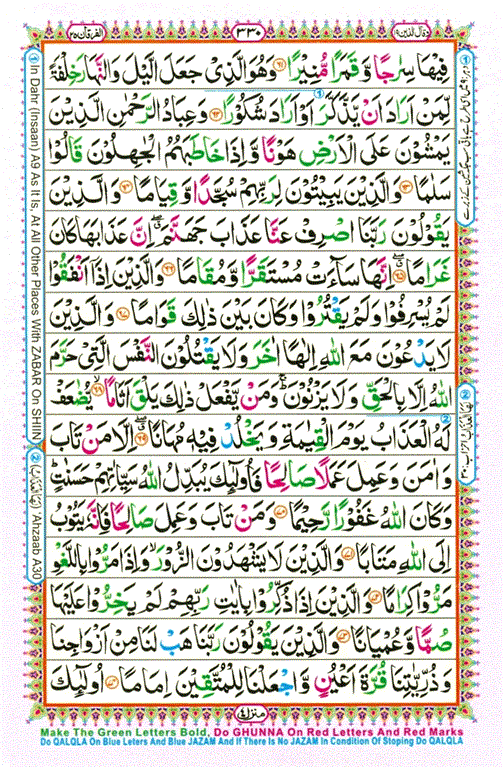 وقال الذین ۱۹
۳۳۰
الفرقان ۲۵
فِیْهَا سِرٰجًا وَّ قَمَرًا مُّنِیْرًا ۝۶۱ وَهُوَ الَّذِیْ جَعَلَ الَّیْلَ وَالنَّهَارَ خِلْفَةً
لِّمَنْ اَرَادَ اَنْ یَّذَّكَّرَ اَوْ اَرَادَ شُكُوْرًا ۝۶۲ وَعِبَادُ الرَّحْمٰنِ الَّذِیْنَ
یَمْشُوْنَ عَلَی الْاَرْضِ هَوْنًا وَّ اِذَا خَاطَبَهُمُ الْجٰهِلُوْنَ قَالُوْا
سَلٰمًا ۝۶۳ وَالَّذِیْنَ یَبِیْتُوْنَ لِرَبِّهِمْ سُجَّدًا وَّ قِیَامًا ۝۶۴ وَالَّذِیْنَ
یَقُوْلُوْنَ رَبَّنَا اصْرِفْ عَنَّا عَذَابَ جَهَنَّمَ ۖ اِنَّ عَذَابَهَا كَانَ
غَرَامًا ۝۶۵ اِنَّهَا سَآءَتْ مُسْتَقَرًّا وَّ مُقَامًا ۝۶۶ وَالَّذِیْنَ اِذَاۤ اَنْفَقُوْا
لَمْ یُسْرِفُوْا وَلَمْ یَقْتُرُوْا وَكَانَ بَیْنَ ذٰلِكَ قَوَامًا ۝۶۷ وَالَّذِیْنَ
لَا یَدْعُوْنَ مَعَ اللّٰهِ اِلٰهًا اٰخَرَ وَلَا یَقْتُلُوْنَ النَّفْسَ الَّتِیْ حَرَّمَ
اللّٰهُ اِلَّا بِالْحَقِّ وَلَا یَزْنُوْنَ ۚ وَمَنْ یَّفْعَلْ ذٰلِكَ یَلْقَ اَثَامًا ۝۶۸ یُّضٰعَفْ
لَهُ الْعَذَابُ یَوْمَ الْقِیٰمَةِ وَ یَخْلُدْ فِیْهٖ مُهَانًا ۝۶۹ اِلَّا مَنْ تَابَ
وَاٰمَنَ وَعَمِلَ عَمَلًا صَالِحًا فَاُولٰٓئِكَ یُبَدِّلُ اللّٰهُ سَیِّاٰتِهِمْ حَسَنٰتٍ ؕ
وَكَانَ اللّٰهُ غَفُوْرًا رَّحِیْمًا ۝۷۰ وَمَنْ تَابَ وَعَمِلَ صَالِحًا فَاِنَّهٗ یَتُوْبُ
اِلَی اللّٰهِ مَتَابًا ۝۷۱ وَالَّذِیْنَ لَا یَشْهَدُوْنَ الزُّوْرَ ۙ وَاِذَا مَرُّوْا بِاللَّغْوِ
مَرُّوْا كِرَامًا ۝۷۲ وَالَّذِیْنَ اِذَا ذُكِّرُوْا بِاٰیٰتِ رَبِّهِمْ لَمْ یَخِرُّوْا عَلَیْهَا
صُمًّا وَّ عُمْیَانًا ۝۷۳ وَالَّذِیْنَ یَقُوْلُوْنَ رَبَّنَا هَبْ لَنَا مِنْ اَزْوَاجِنَا
وَ ذُرِّیّٰتِنَا قُرَّةَ اَعْیُنٍ وَّ اجْعَلْنَا لِلْمُتَّقِیْنَ اِمَامًا ۝۷۴ اُولٰٓئِكَ
① In Dahr (Insaan) A9 As It Is, At All Other Places With ZABAR On SHIIN ② Ahzaab A30
Make The Green Letters Bold, Do GHUNNA On Red Letters And Red Marks
Do QALQLA On Blue Leters And Blue JAZAM And If There Is No JAZAM In Condition Of Stoping Do QALQLA